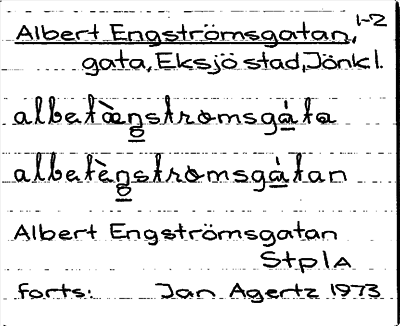 Albert Engströmsgatan, 1-2
gata, Eksjö stad, Jönk l.
albetæ̀ŋstrωmsgáta
albetèŋstrωmsgátan
Albert Engströmsgatan
Stpla
forts: Jan Agertz 1973